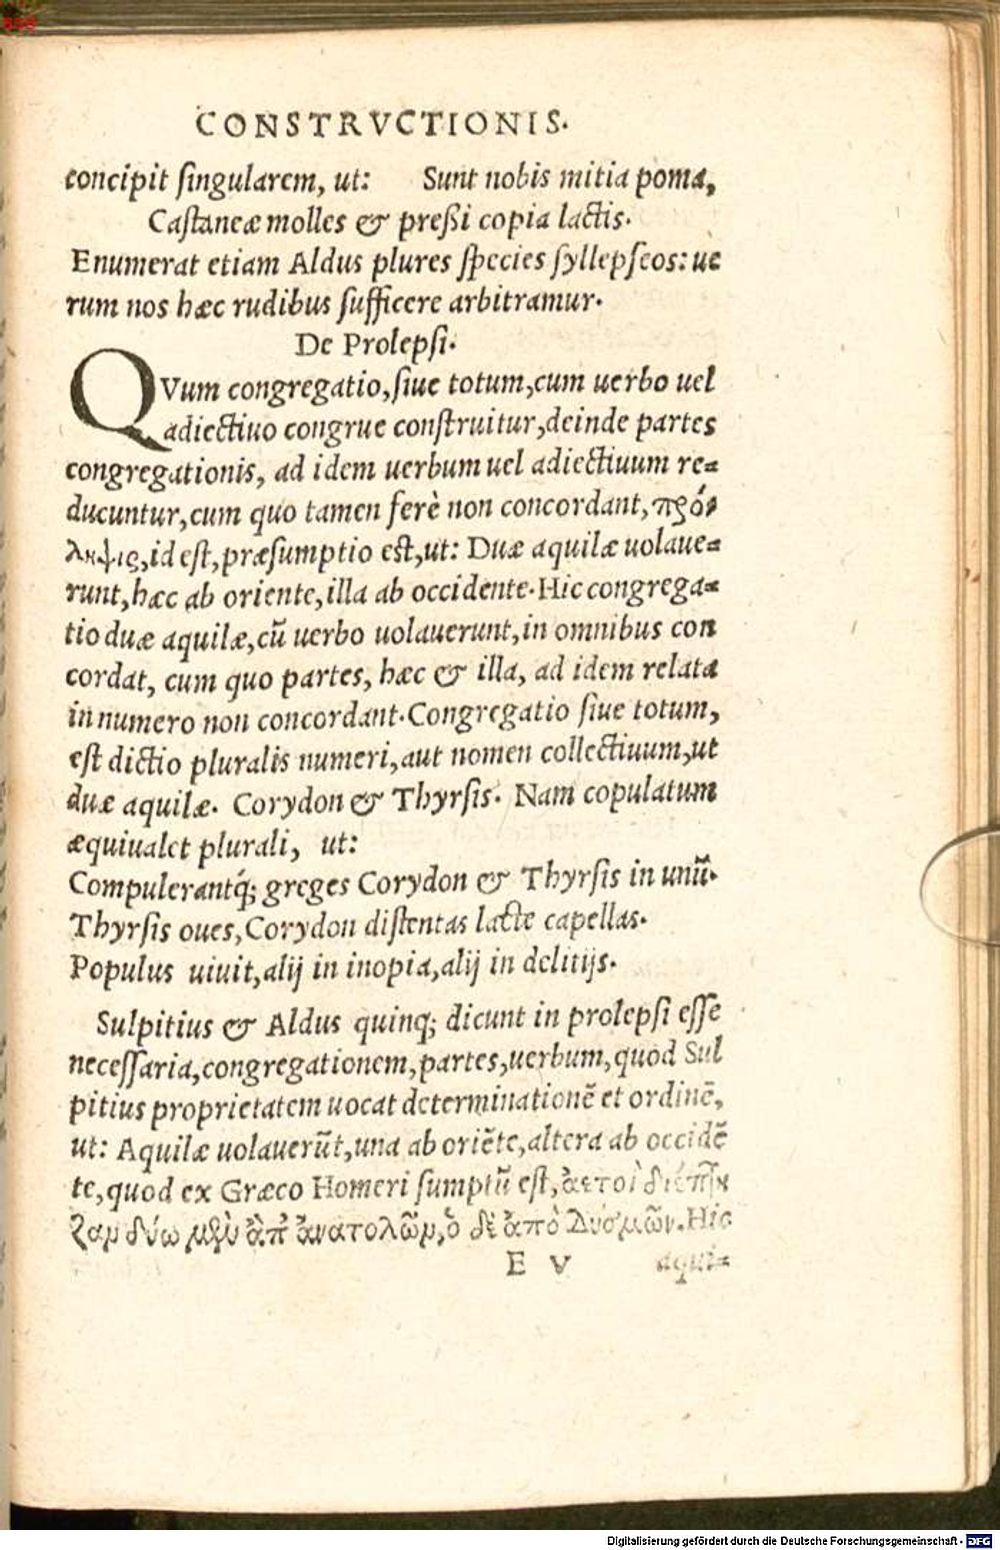 CONSTRVCTIONIS.
concipit ſingularem, ut: Sunt nobis mitia poma,
Caſtaneæ molles & preßi copia lactis.
Enumerat etiam Aldus plures ſpecies ſyllepſeos: ue
rum nos hæc rudibus ſufficere arbitramur.
De Prolepſi.
QVum congregatio, ſiue totum, cum uerbo uel
adiectiuo congrue conſtruitur, deinde partes
congregationis, ad idem uerbum uel adiectiuum re=
ducuntur, cum quo tamen ferè non concordant, πρό=
ληψις, id eſt, præſumptio eſt, ut: Duæ aquilæ uolaue=
runt, hæc ab oriente, illa ab occidente. Hic congrega=
tio duæ aquilæ, cū uerbo uolauerunt, in omnibus con
cordat, cum quo partes, hæc & illa, ad idem relata
in numero non concordant. Congregatio ſiue totum,
eſt dictio pluralis numeri, aut nomen collectiuum, ut
duæ aquilæ. Corydon & Thyrſis. Nam copulatum
æquiualet plurali, ut:
Compulerantq́; greges Corydon & Thyrſis in unū.
Thyrſis oues, Corydon diſtentas lacte capellas.
Populus uiuit, alij in inopia, alij in delitijs.
Sulpitius & Aldus quinq; dicunt in prolepſi eſſe
neceſſaria, congregationem, partes, uerbum, quod Sul
pitius proprietatem uocat determinationē et ordinē,
ut: Aquilæ uolauerūt, una ab oriēte, altera ab occidē
te, quod ex Græco Homeri ſumptū eſt, ἀετοὶ διέπτη
ζαν δύω μὲν ἀπ' ἀνατολῶν, ὁ δὲ ἀπὸ Δυσμῶν. Hic
E V aqui=
Digitalisierung gefördert durch die Deutsche Forschungsgemeinschaft - DFG